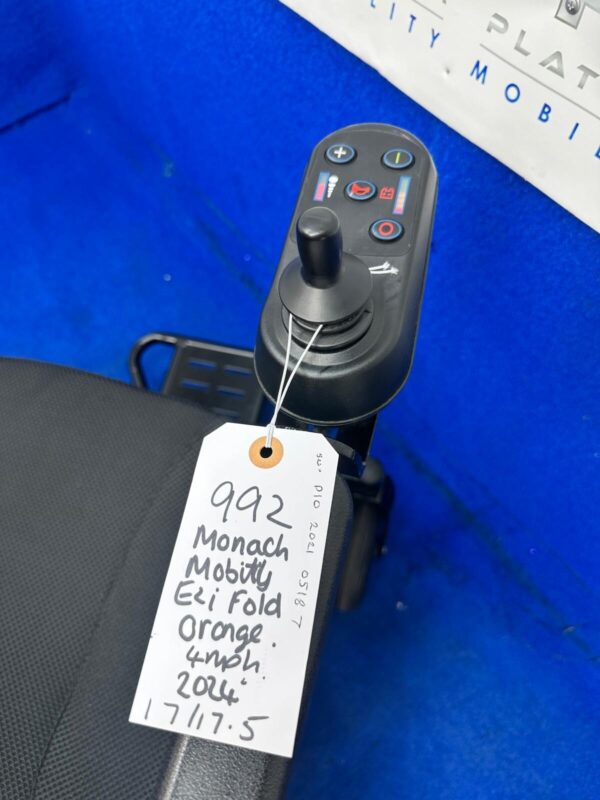 PLAT
LITY MOBIL
992
Monach
Mobitly
Ezi Fold
Orange.
4mph.
2024
17/17.5
SW. P10 2021 0518 7